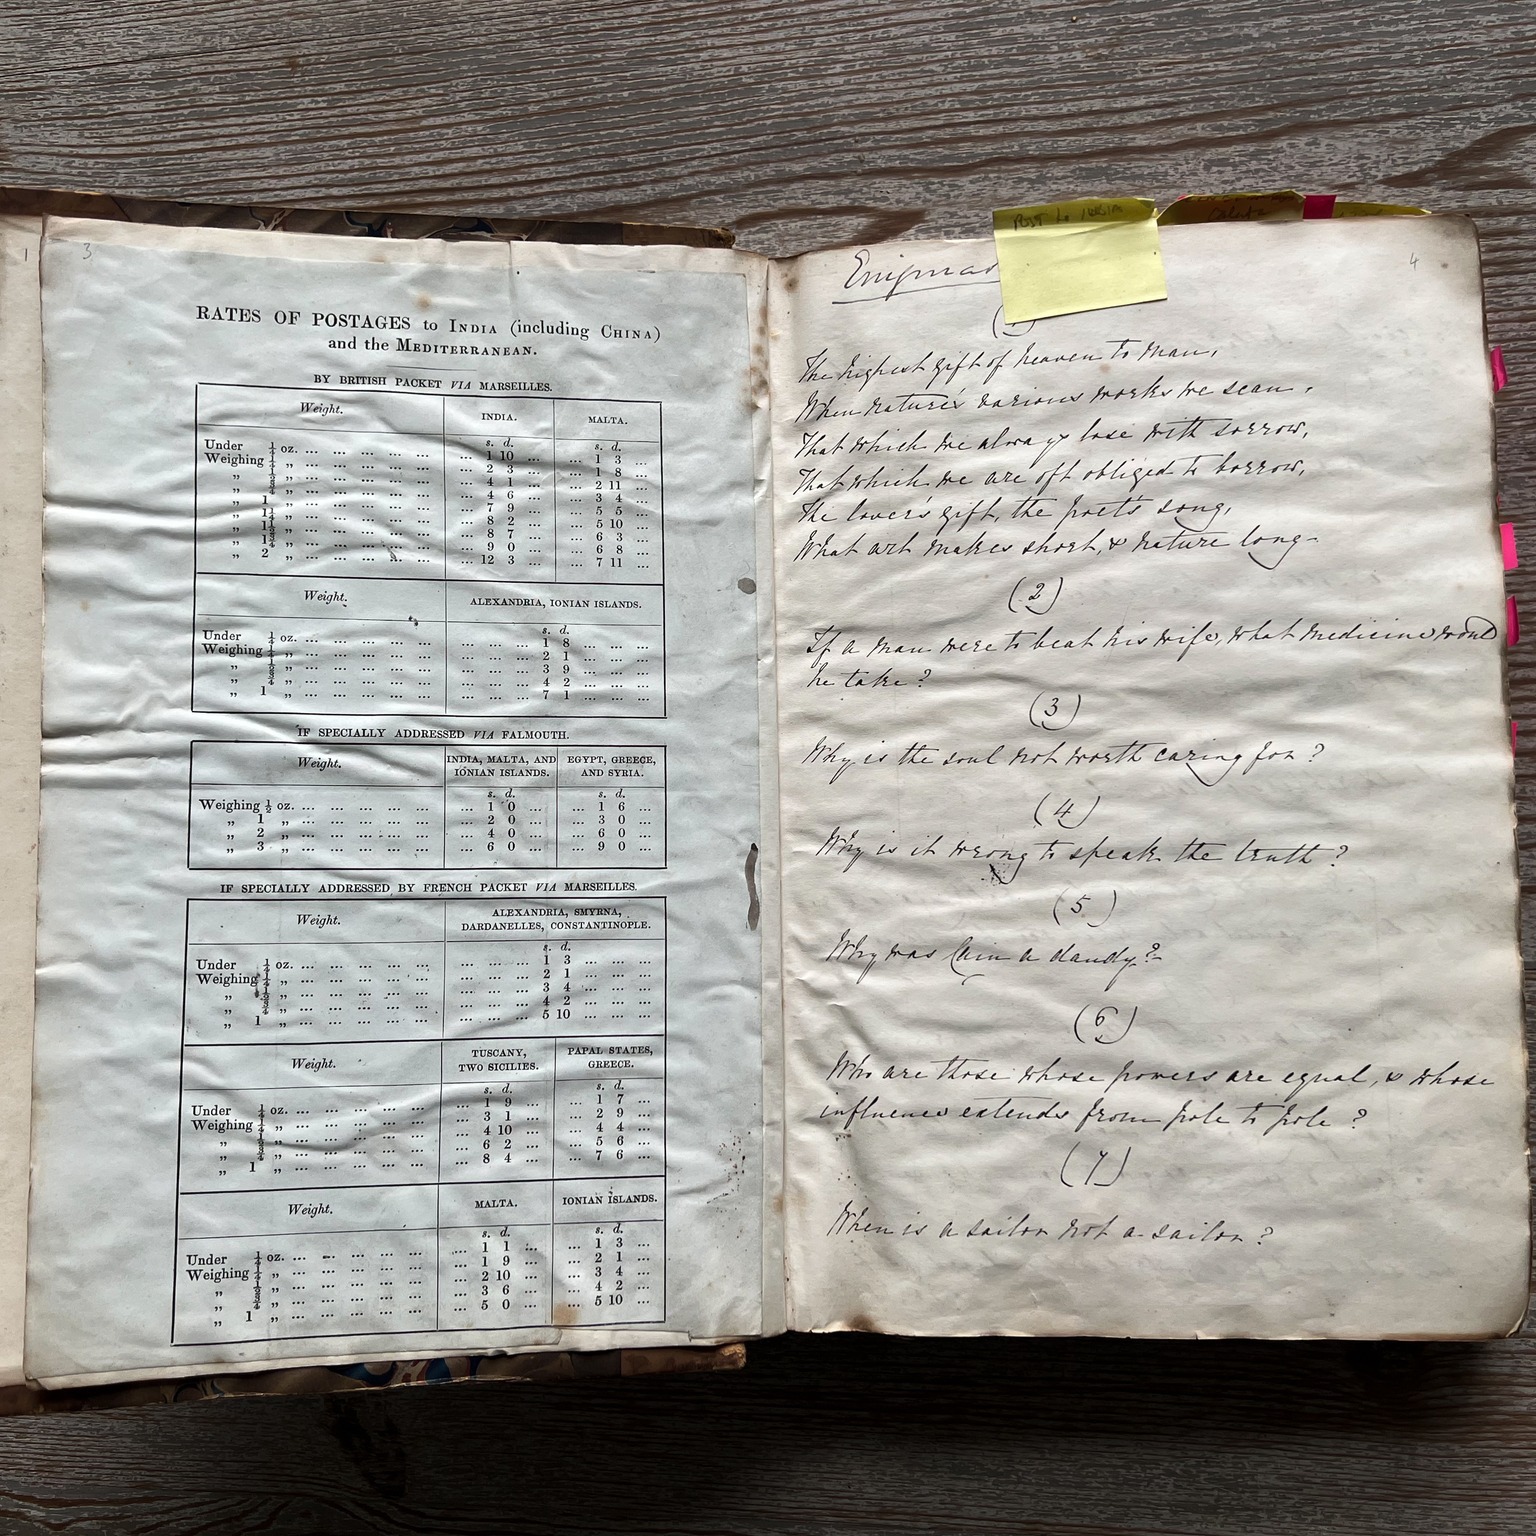 1
3
RATES OF POSTAGES to INDIA (including CHINA)
and the MEDITERRANEAN.
BY BRITISH PACKET VIA MARSEILLES.
Weight. INDIA. MALTA.
s. d. s. d.
Under ¼ oz. ... ... ... ... ... ... 1 10 ... ... 1 3 ...
Weighing ¼ „ ... ... ... ... ... ... 2 3 ... ... 1 8 ...
„ ½ „ ... ... ... ... ... ... 4 1 ... ... 2 11 ...
„ ¾ „ ... ... ... ... ... ... 4 6 ... ... 3 4 ...
„ 1 „ ... ... ... ... ... ... 7 9 ... ... 5 5 ...
„ 1¼ „ ... ... ... ... ... ... 8 2 ... ... 5 10 ...
„ 1½ „ ... ... ... ... ... ... 8 7 ... ... 6 3 ...
„ 1¾ „ ... ... ... ... ... ... 9 0 ... ... 6 8 ...
„ 2 „ ... ... ... ... ... ... 12 3 ... ... 7 11 ...
Weight. ALEXANDRIA, IONIAN ISLANDS.
s. d.
Under ¼ oz. ... ... ... ... ... ... ... ... 1 8 ... ... ...
Weighing ¼ „ ... ... ... ... ... ... ... ... 2 1 ... ... ...
„ ½ „ ... ... ... ... ... ... ... ... 3 9 ... ... ...
„ ¾ „ ... ... ... ... ... ... ... ... 4 2 ... ... ...
„ 1 „ ... ... ... ... ... ... ... ... 7 1 ... ... ...
IF SPECIALLY ADDRESSED VIA FALMOUTH.
Weight. INDIA, MALTA, AND IONIAN ISLANDS. EGYPT, GREECE, AND SYRIA.
s. d. s. d.
Weighing ½ oz. ... ... ... ... ... ... 1 0 ... ... 1 6 ...
„ 1 „ ... ... ... ... ... ... 2 0 ... ... 3 0 ...
„ 2 „ ... ... ... ... ... ... 4 0 ... ... 6 0 ...
„ 3 „ ... ... ... ... ... ... 6 0 ... ... 9 0 ...
IF SPECIALLY ADDRESSED BY FRENCH PACKET VIA MARSEILLES.
Weight. ALEXANDRIA, SMYRNA, DARDANELLES, CONSTANTINOPLE.
s. d.
Under ¼ oz. ... ... ... ... ... ... ... ... 1 3 ... ... ...
Weighing ¼ „ ... ... ... ... ... ... ... ... 2 1 ... ... ...
„ ½ „ ... ... ... ... ... ... ... ... 3 4 ... ... ...
„ ¾ „ ... ... ... ... ... ... ... ... 4 2 ... ... ...
„ 1 „ ... ... ... ... ... ... ... ... 5 10 ... ... ...
Weight. TUSCANY, TWO SICILIES. PAPAL STATES, GREECE.
s. d. s. d.
Under ¼ oz. ... ... ... ... ... ... 1 9 ... ... 1 7 ...
Weighing ¼ „ ... ... ... ... ... ... 3 1 ... ... 2 9 ...
„ ½ „ ... ... ... ... ... ... 4 10 ... ... 4 4 ...
„ ¾ „ ... ... ... ... ... ... 6 2 ... ... 5 6 ...
„ 1 „ ... ... ... ... ... ... 8 4 ... ... 7 6 ...
Weight. MALTA. IONIAN ISLANDS.
s. d. s. d.
Under ¼ oz. ... ... ... ... ... ... 1 1 ... ... 1 3 ...
Weighing ¼ „ ... ... ... ... ... ... 1 9 ... ... 2 1 ...
„ ½ „ ... ... ... ... ... ... 2 10 ... ... 3 4 ...
„ ¾ „ ... ... ... ... ... ... 3 6 ... ... 4 2 ...
„ 1 „ ... ... ... ... ... ... 5 0 ... ... 5 10 ...
POST to INDIA
4
Enigmas
The highest gift of heaven to man,
When nature's various works we scan,
That which we always lose with sorrow,
That which we are oft obliged to borrow,
The lover's gift, the poet's song,
What art makes short, & nature long-
(2)
If a man were to beat his wife, what medicine would
he take?
(3)
Why is the soul not worth caring for?
(4)
Why is it wrong to speak the truth?
(5)
Why was Cain a dandy?
(6)
Who are those whose powers are equal, & whose
influence extends from pole to pole?
(7)
When is a sailor not a sailor?